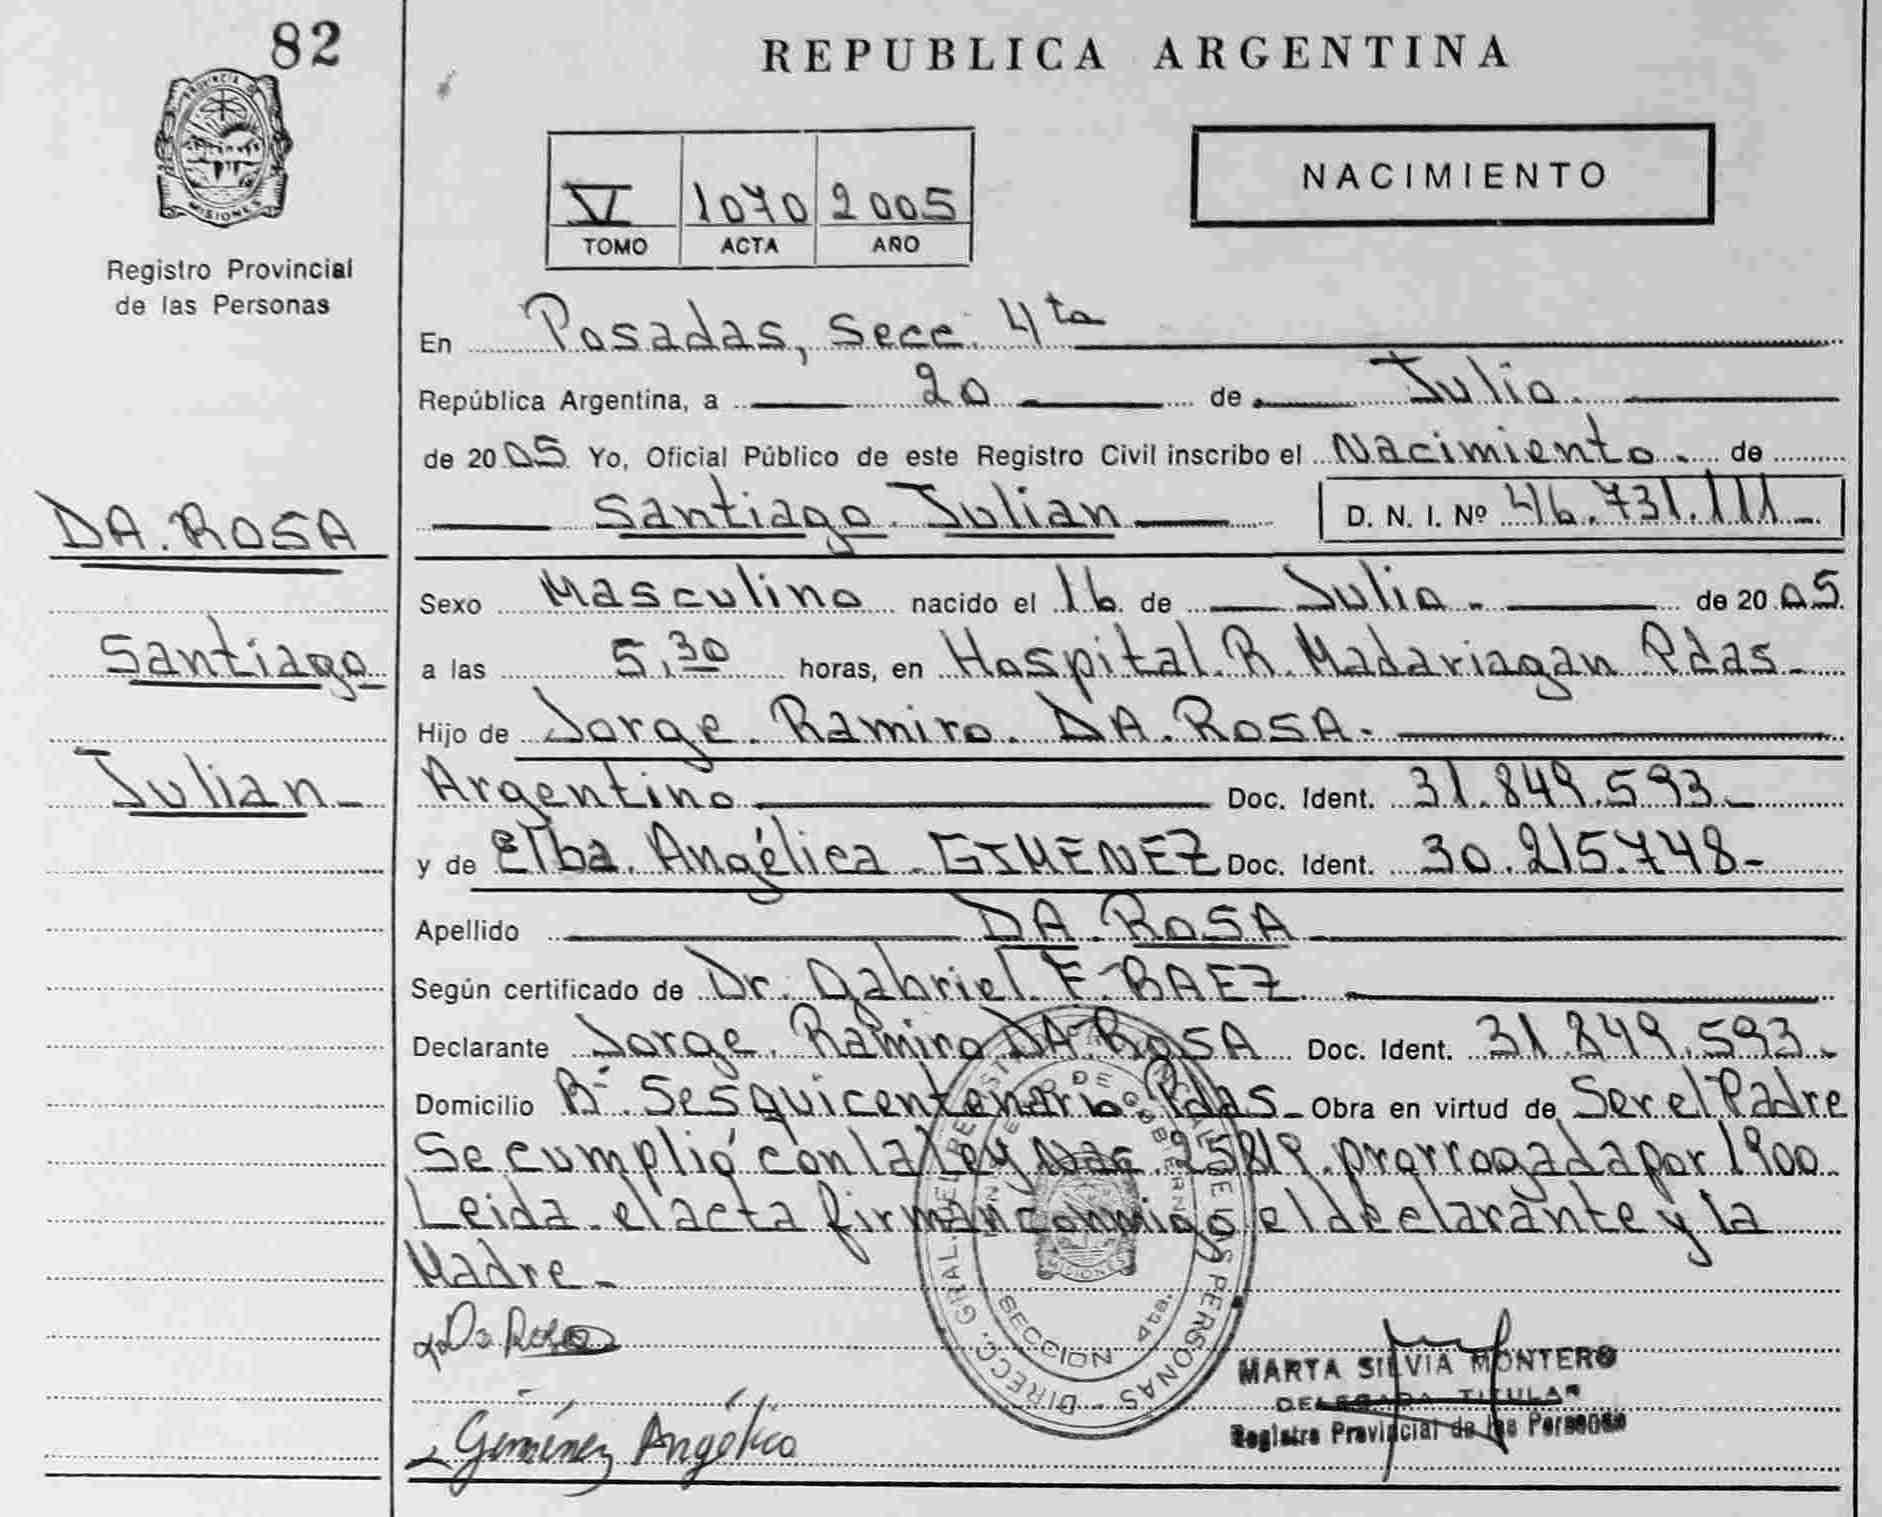 82
PROVINCIA DE
MISIONES
Registro Provincial
de las Personas
DA.ROSA
Santiago
Julian
REPUBLICA ARGENTINA
V 1070 2005
TOMO ACTA AÑO
NACIMIENTO
En Posadas, Secc. 4ta
República Argentina, a 20 de Julio.
de 2005 Yo, Oficial Público de este Registro Civil inscribo el Nacimiento. de
Santiago Julian D. N. I. Nº 46.731.111
Sexo Masculino nacido el 16 de Julio. de 2005.
a las 5,30 horas, en Hospital R. Madariagan Pdas
Hijo de Jorge. Ramiro. DA. ROSA.
Argentino Doc. Ident. 31.849.593
y de Elba. Angélica. GIMENEZ Doc. Ident. 30.215.748-
Apellido DA. ROSA
Según certificado de Dr. Gabriel. E. BAEZ
Declarante Jorge. Ramiro DA. ROSA Doc. Ident. 31.849.593.
Domicilio Bº Sesquicentenario Pdas Obra en virtud de Ser el Padre
Se cumplió con la Ley Nac 25819. prorrogada por 1900
Leida el acta firman conmigo el declarante y la
Madre
Da Rosa
Gimenez Angélica
SECCION 4ta.
MISIONES
MARTA SILVIA MONTERO
DELEGADA TITULAR
Registro Provincial de las Personas